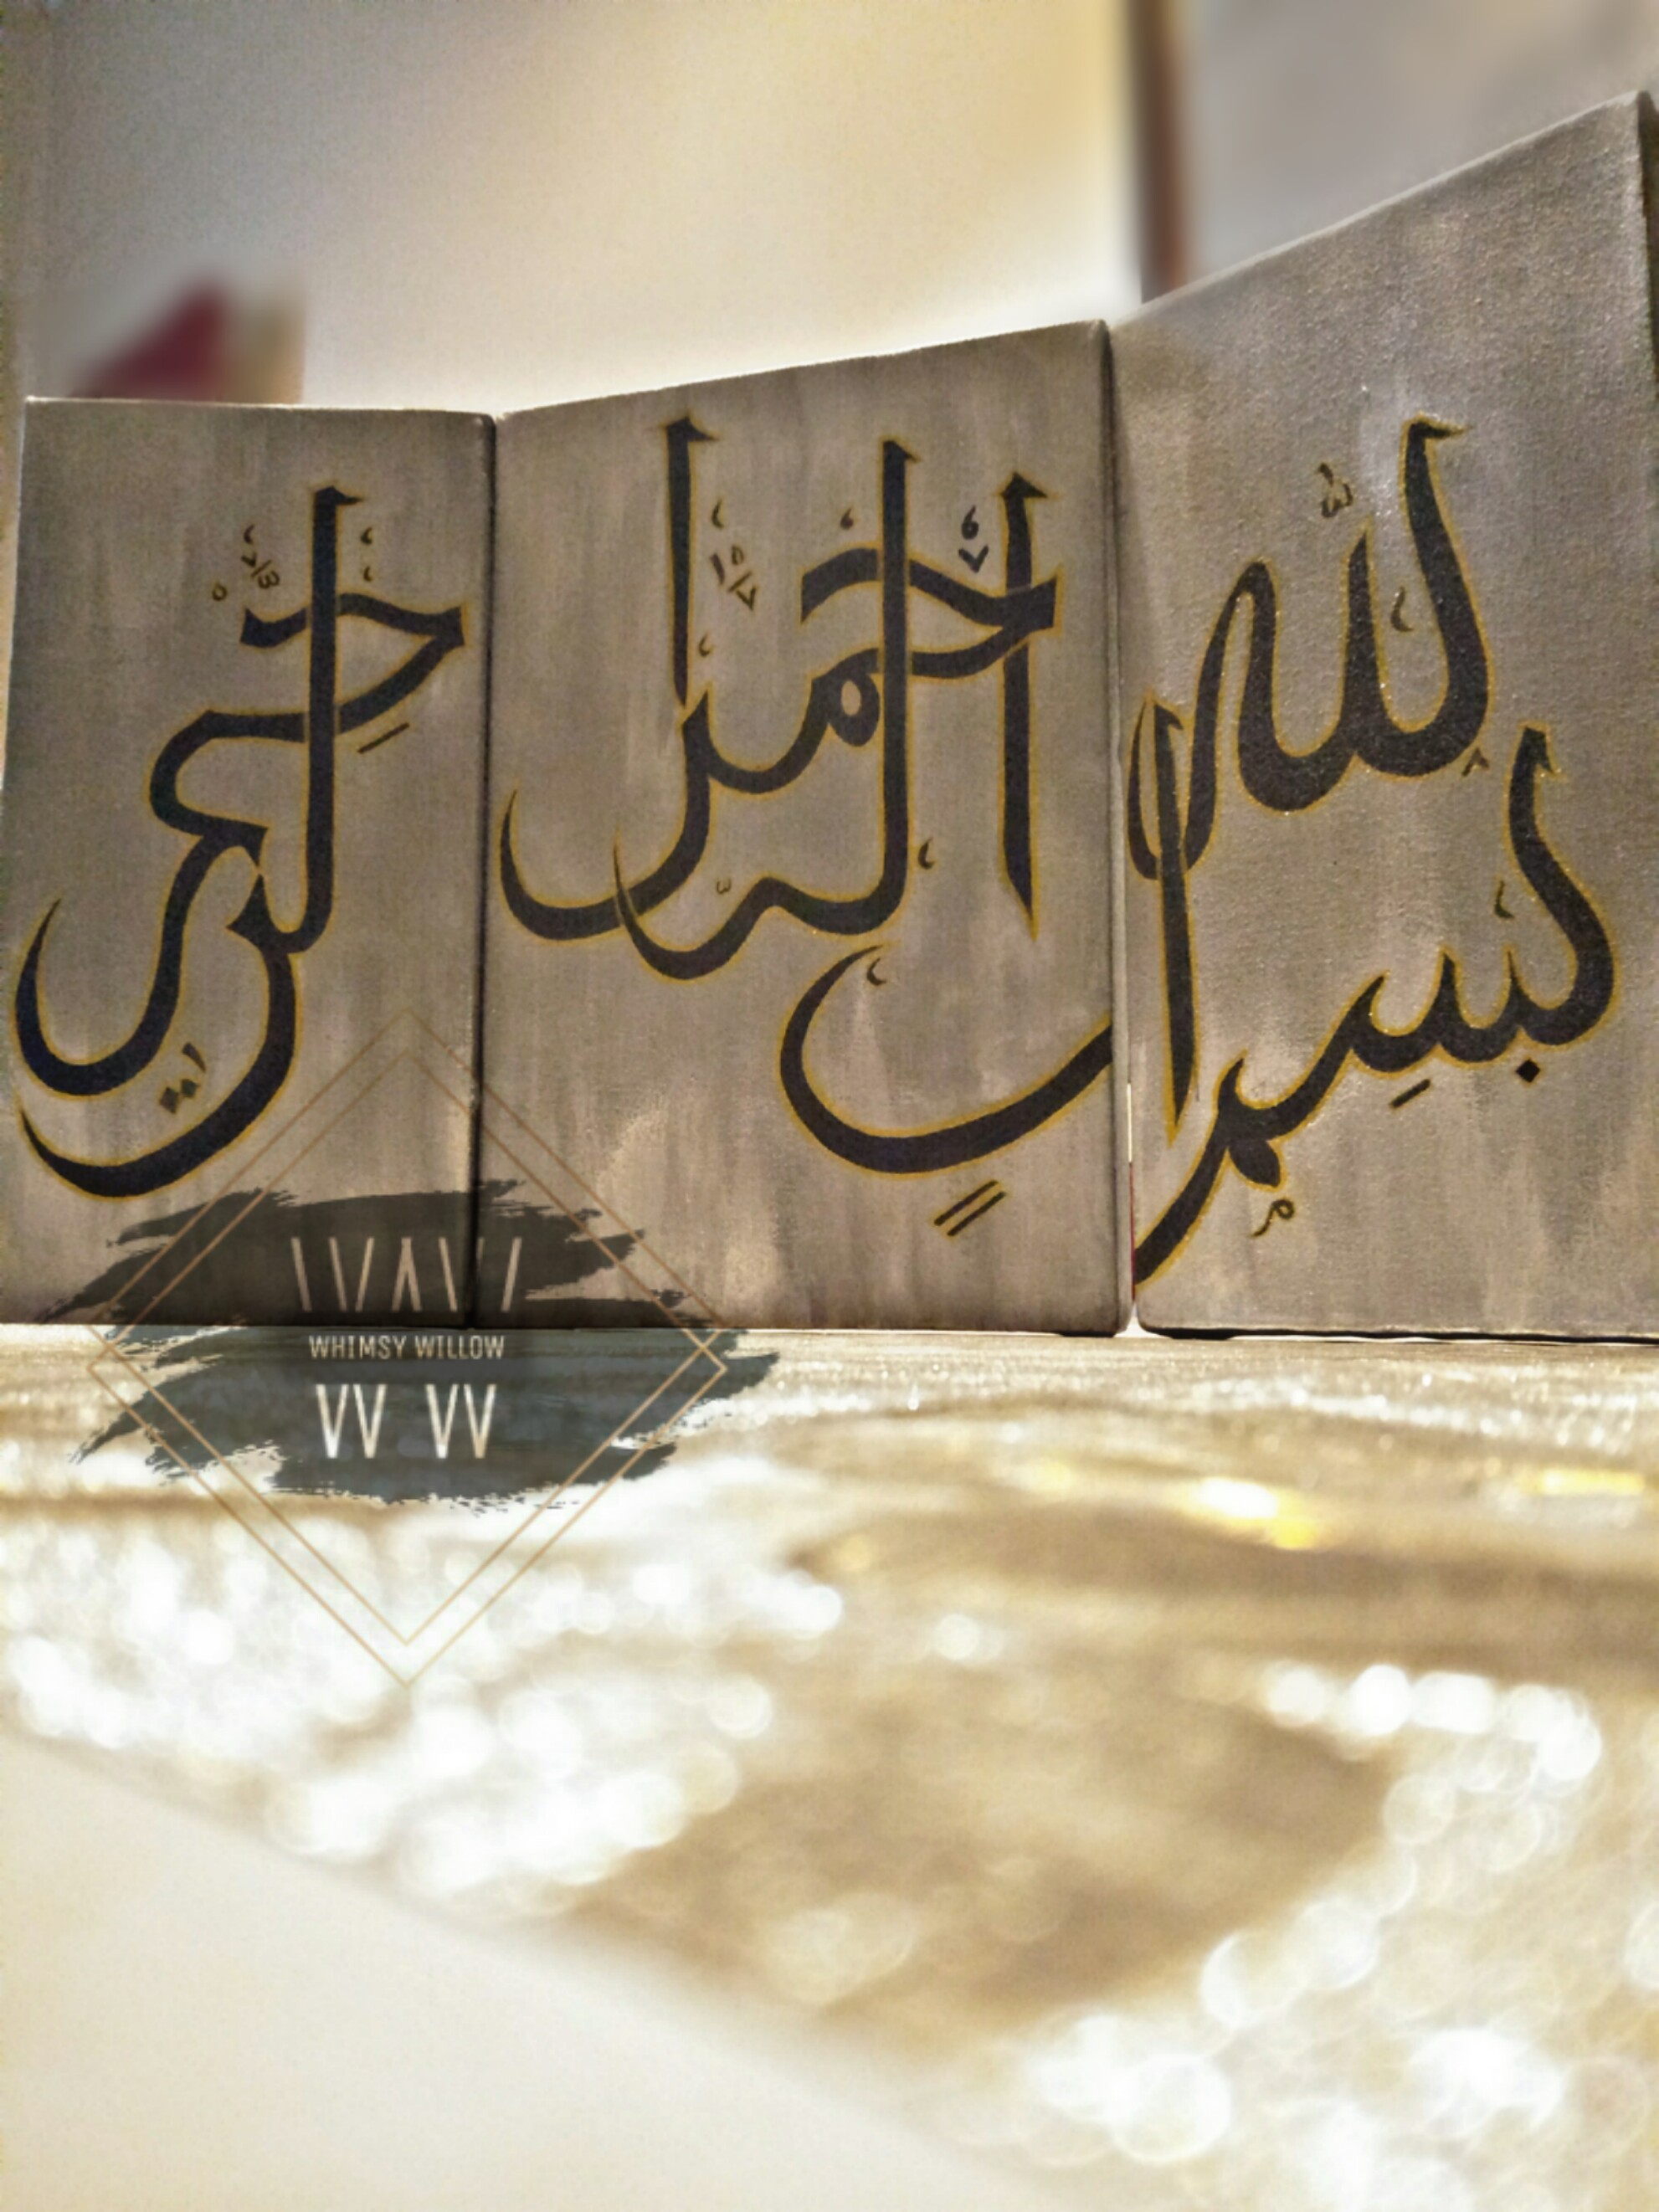 بسم الله الرحمن الرحيم
WHIMSY WILLOW